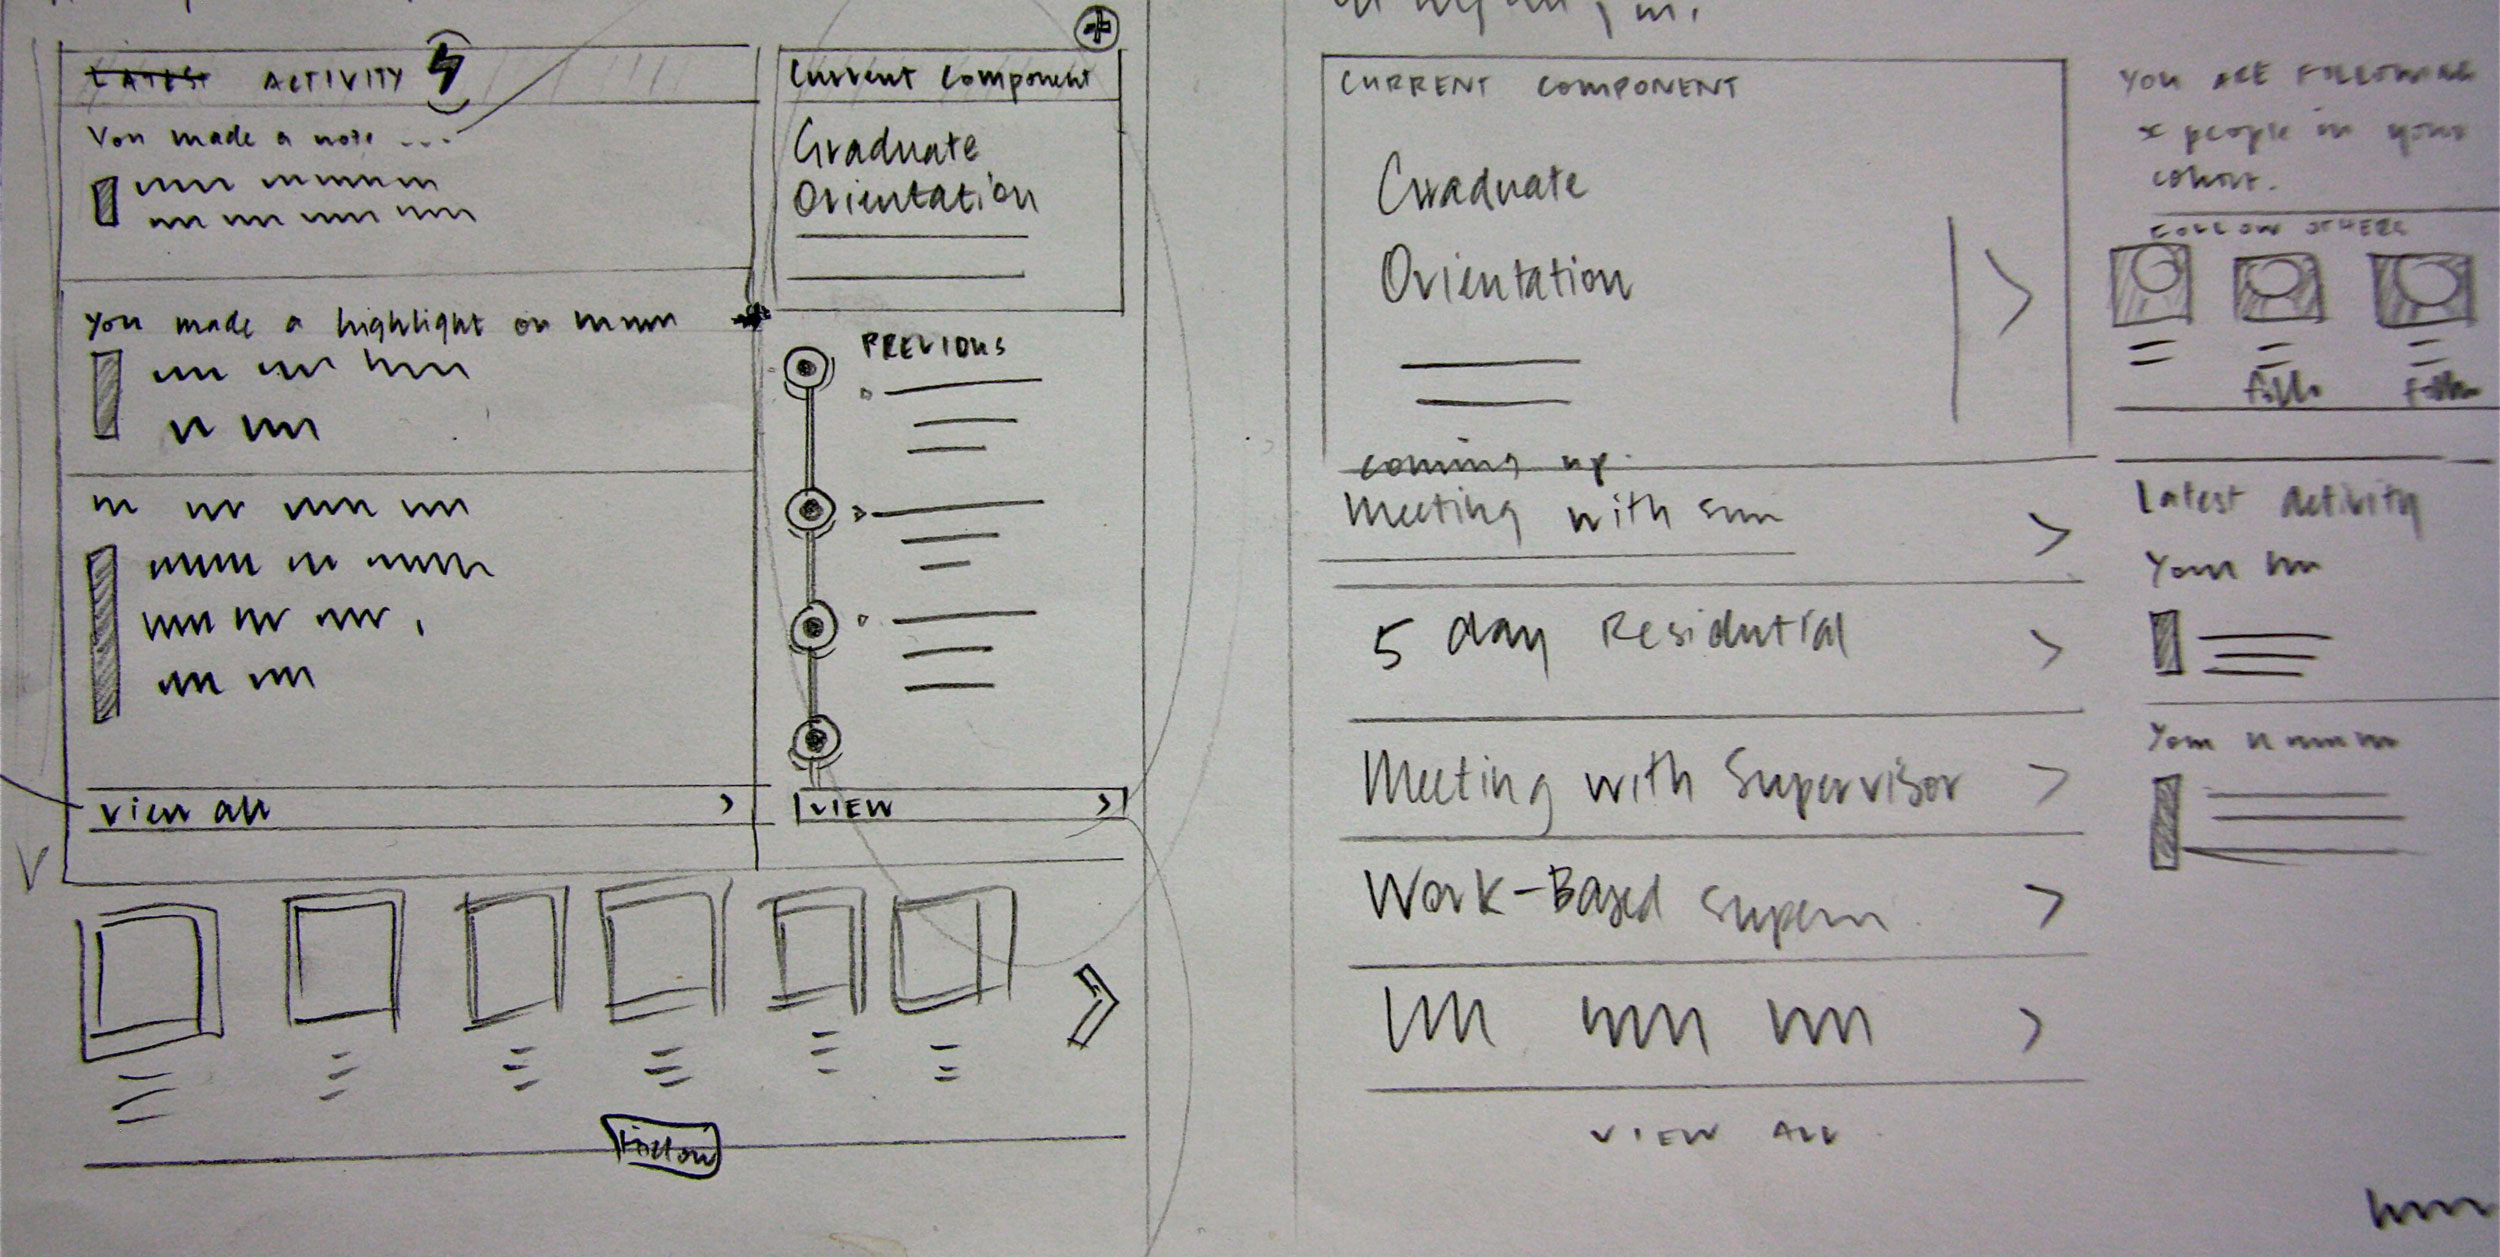 LATEST ACTIVITY
You made a note ...
You made a highlight on
view all
Current Component
Graduate
Orientation
PREVIOUS
VIEW
Follow
CURRENT COMPONENT
Graduate
Orientation
coming up.
Meeting with
5 day Residutial
Meeting with Supervisor
Work-Based
VIEW ALL
YOU ARE FOLLOWING
x people in your
cohort.
FOLLOW OTHERS
Latest Activity
Your
Your